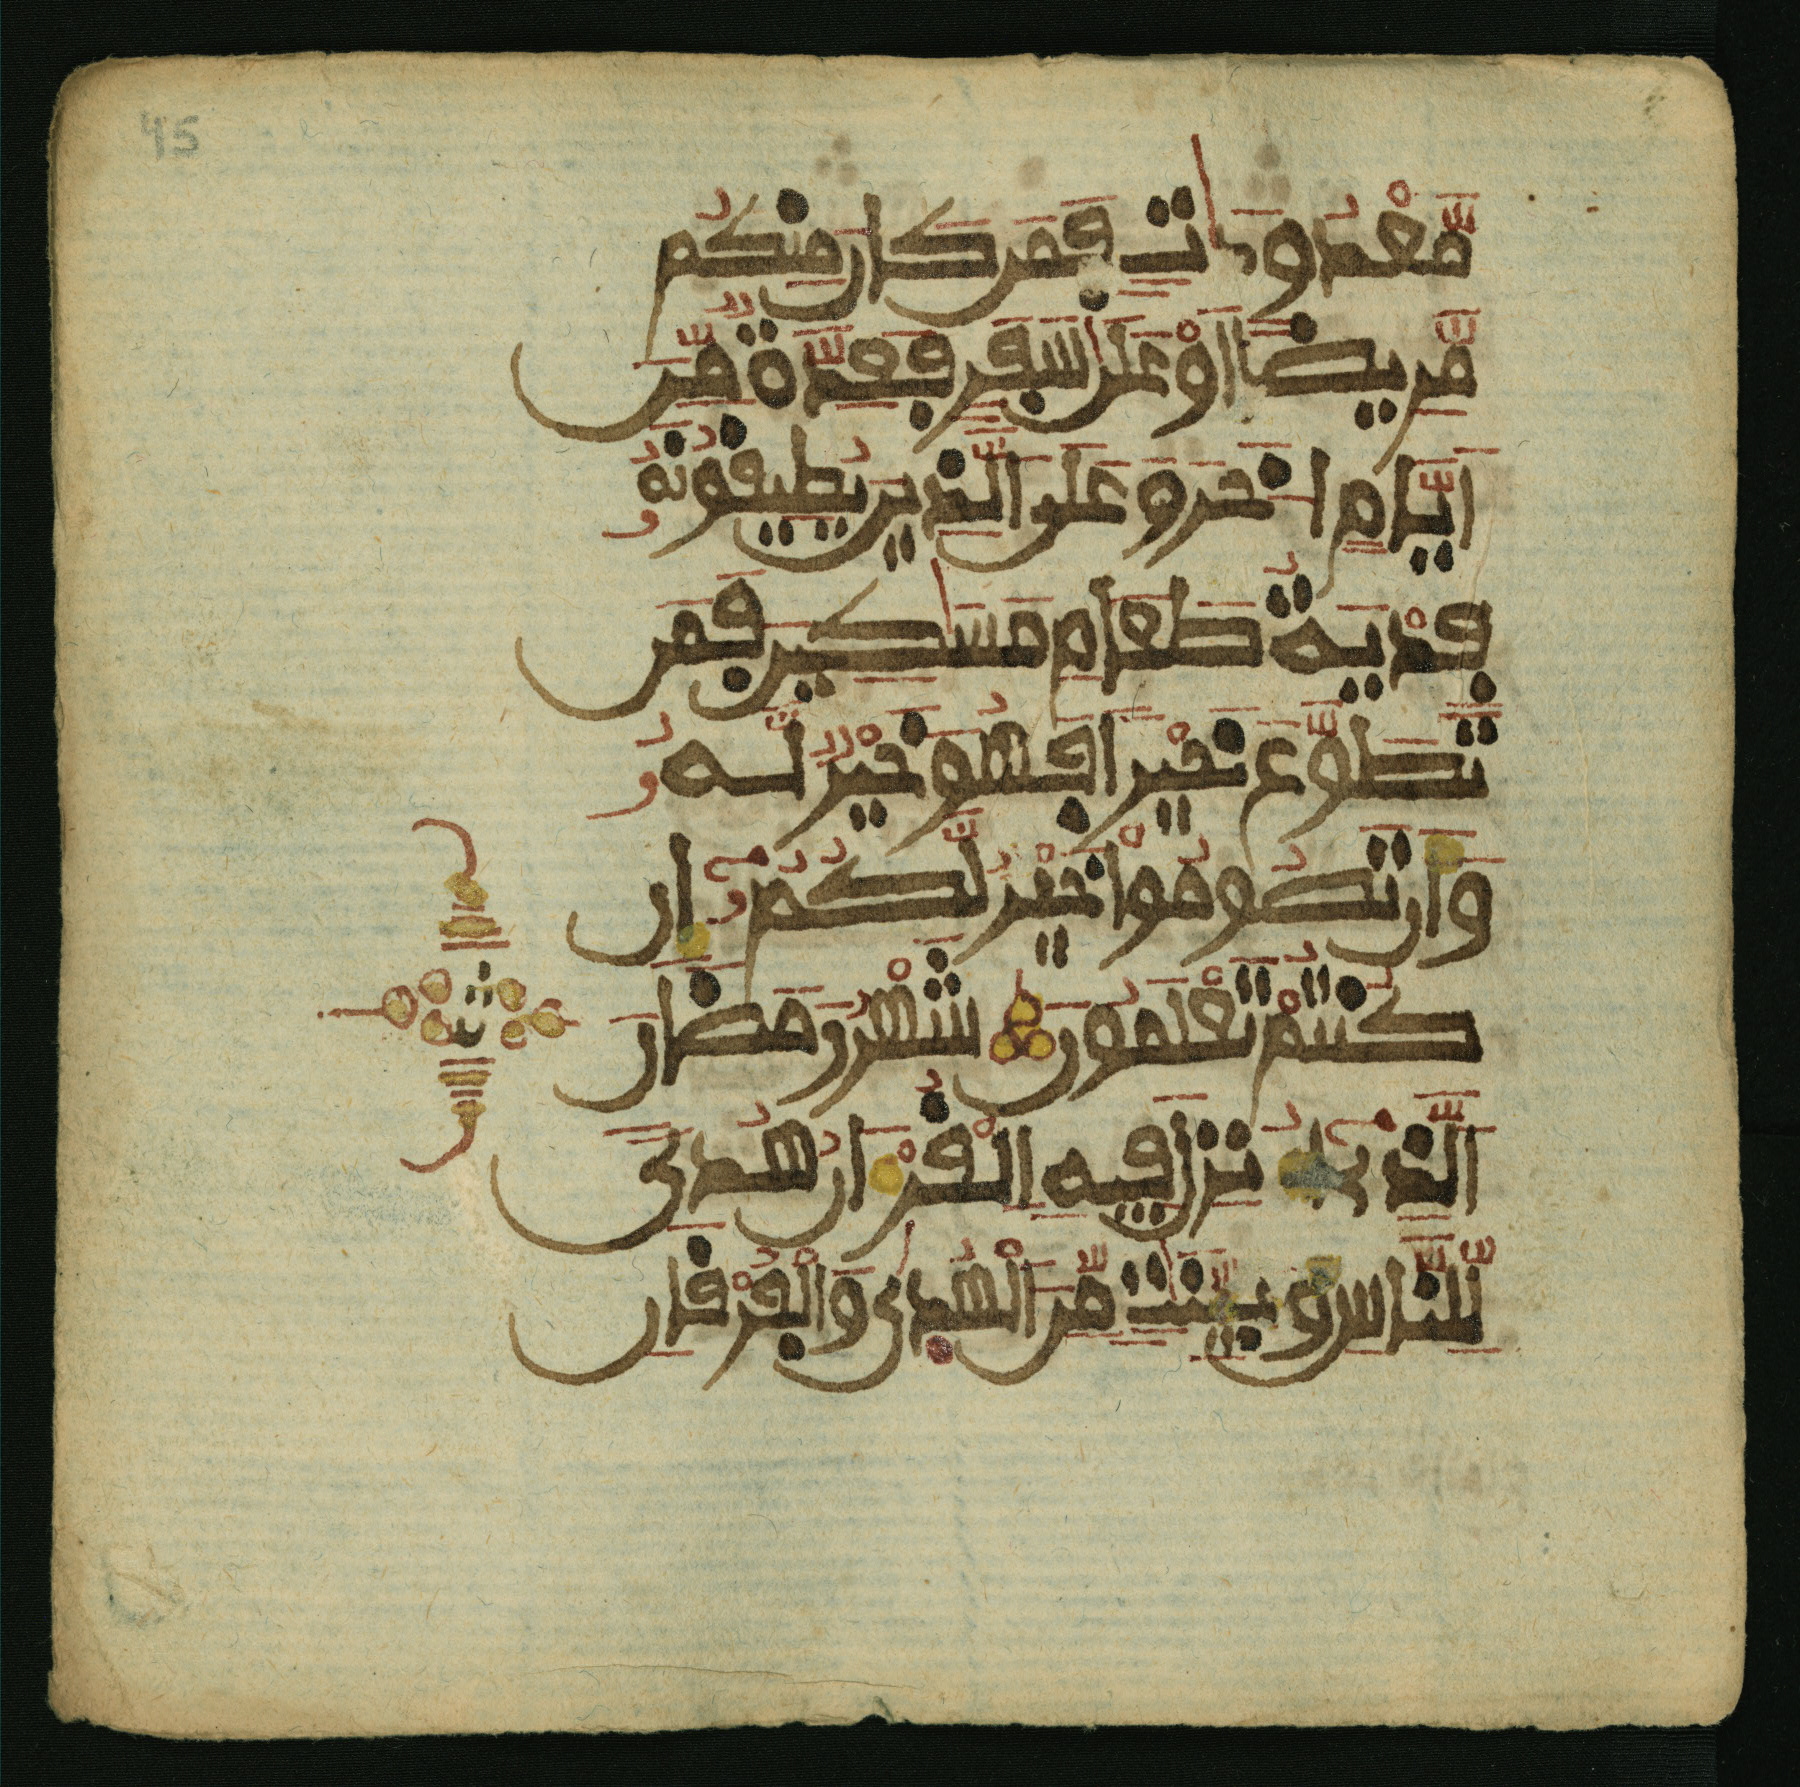 45
مَّعْدُودَٰتٖ فَمَن كَانَ مِنكُم
مَّرِيضًا اَوْ عَلَىٰ سَفَرٖ فَعِدَّةٞ مِّنَ
اَيَّامٍ اخَرَ وَعَلَى الَّذِينَ يُطِيقُونَهُۥ
فِدْيَةُ طَعَامِ مَسَٰكِينَ فَمَن
تَطَوَّعَ خَيْرًا فَهُوَ خَيْرٞ لَّهُۥ
وَأَن تَصُومُواْ خَيْرٞ لَّكُمُۥٓ إِن
كُنتُمْ تَعْلَمُونَ شَهْرُ رَمَضَانَ
الَّذِےٓ أُنزِلَ فِيهِ الْقُرْءَانُ هُدىٗ
لِّلنَّاسِ وَبَيِّنَٰتٖ مِّنَ الْهُدَىٰ وَالْفُرْقَانِ